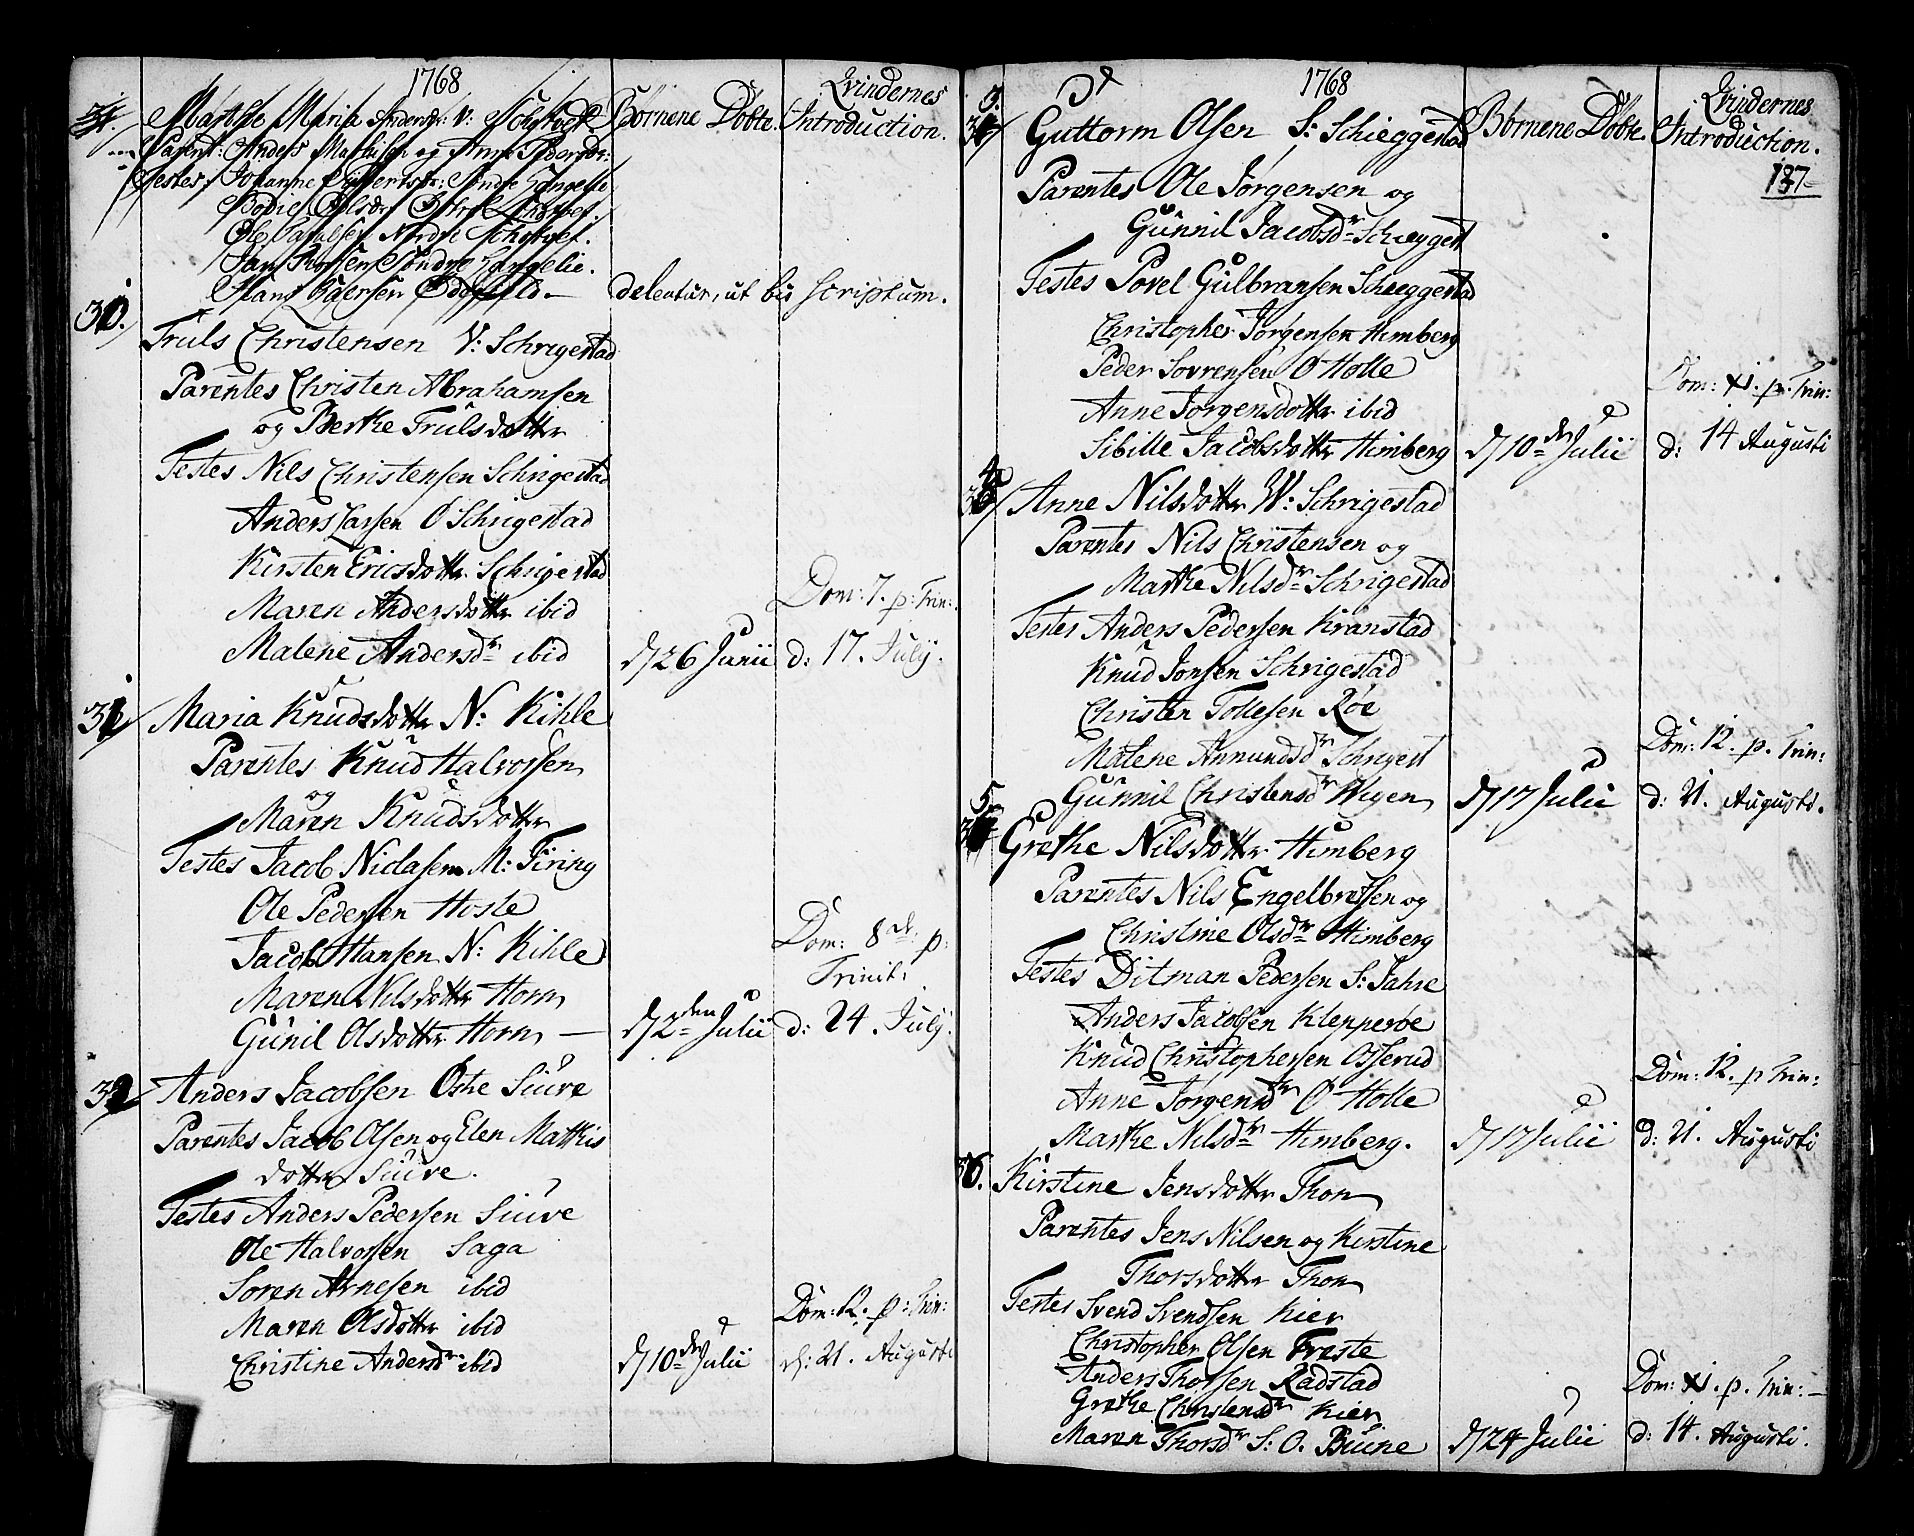 1768
Børnene Döbte.
Qvindernes
Introduction.
Marthe Maria Andersdr: V:
Parent: Anders Mathisen og Anne Pedersdr:
Testes: Johanne Søndre Hangelie
Ole Nordre
Søndre Hangelie.
Hans
deleatur, ut bis scriptum.
30.
Truls Christensen V: Schrigestad
Parentes Christen Abrahamsen
og Berthe Trulsdottr
Testes Nils Christensen Schrigestad
Anders Larsen O Schrigestad
Kirsten Ericsdottr Schrigestad
Maren Andersdottr ibid
Malene Andersdr ibid
d 26 Junii
Dom: 7. p: Trin:
d: 17. Julij.
31
Maria Knudsdottr N: Kihle
Parentes Knud Halvorsen
og
Maren Knudsdottr
Testes Jacob Niclasen M: Firing
Ole Pedersen Hosle
Jacob Hansen N: Kihle
Maren Nilsdottr Horn
Gunil Olsdottr Horn
d 2den Julii
Dom: 8 p:
Trinit:
d: 24. Julij.
32
Anders Jacobsen Østre Siuve
Parentes Jacob Olsen og Elen Mathis
dottr Siuve.
Testes Anders Pedersen Siuve
Ole Halvorsen Saga
Soren Arnesen ibid
Maren Olsdottr ibid
Christine Andersdr ibid
d 10de Julii
Dom: 12. p: Trin:
d: 21. Augusti
1768
Børnene Döbte.
Qvindernes
Introduction.
187
33
Guttorm Olsen S: Schieggestad
Parentes Ole Jørgensen og
Gunnil Jacobsdr Schieggest
Testes Povel Gulbransen Schieggestad
Christopher Jørgensen Himberg
Peder Sovrensen O Holle
Anne Jørgensdottr ibid
Sibille Jacobsdottr Himberg
d 10de Julii
Dom: XI. p. Trin:
d: 14 Augusti
34
Anne Nilsdottr W: Schrigestad
Parentes Nils Christensen og
Marthe Nilsdr Schrigestad
Testes Anders Pedersen Kranstad
Knud Jonsen Schrigestad
Christen Tollefsen Röe
Malene Anmundsdr Schrigest
Gunnil Christensdr Wegen
d 17 Julii
Dom: 12. p. Trin:
d: 21. Augusti.
35
Grethe Nilsdottr Himberg
Parentes Nils Engelbretsen og
Christine Olsdr Himberg
Testes Ditman Pedersen S: Jahre
Anders Jacobsen Klepperøe
Knud Christophersen Osserud
Anne Jørgensdr O Holle
Marthe Nilsdr Himberg.
d 17 Julii
Dom: 12. p Trin:
d: 21. Augusti
36.
Kirstine Jensdottr Thon
Parentes Jens Nilsen og Kirstine
Thorsdottr Thon
Testes Svend Svendsen Kier
Christopher Olsen Freste
Anders Thorsen Radstad
Grethe Christensdr Kier
Maren Thorsdr S: O. Buine
d 24 Julii
Dom: XI. p. Trin:
d: 14. Augusti.